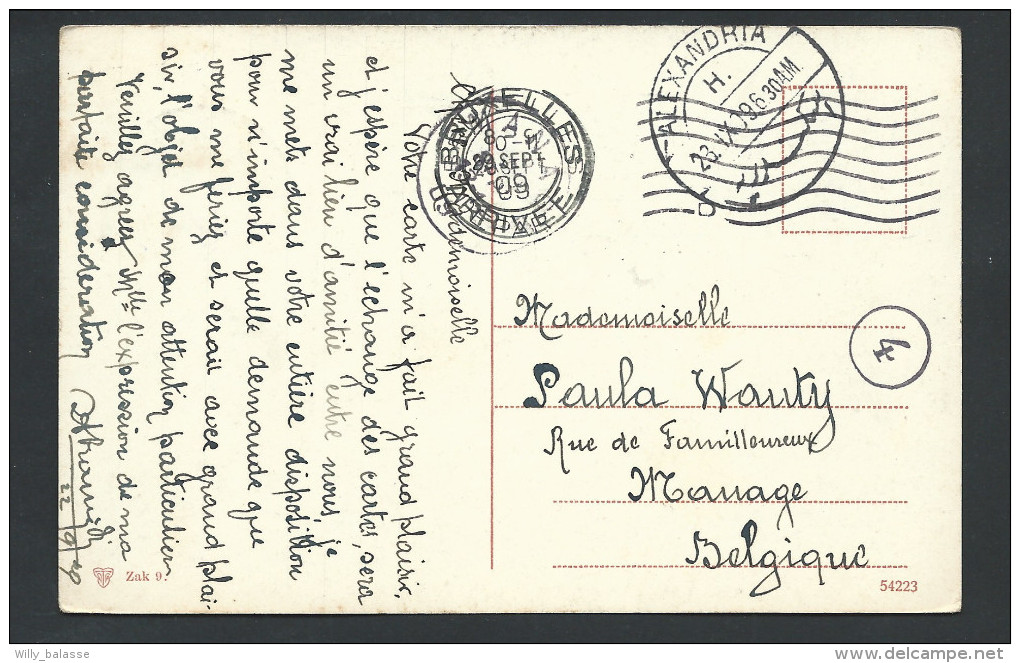 Mademoiselle
Votre carte m'a fait grand plaisir,
et j'espère que l'échange des cartes, sera
un vrai lien d'amitié entre nous, je
me mets dans votre entière disposition
pour n'importe quelle demande que
vous me feriez et serait avec grand plai-
sir, l'objet de mon attention particulière
Veuillez agréer Mlle l'expression de ma
parfaite considération
22/9/09
ALEXANDRIA
H.
23.IX.09.6.30AM.
BRUXELLES
29 SEPT
09
Mademoiselle
Paula Wauty
Rue de Familleureux
Manage
Belgique
4
Zak 9.
54223
Willy_balasse